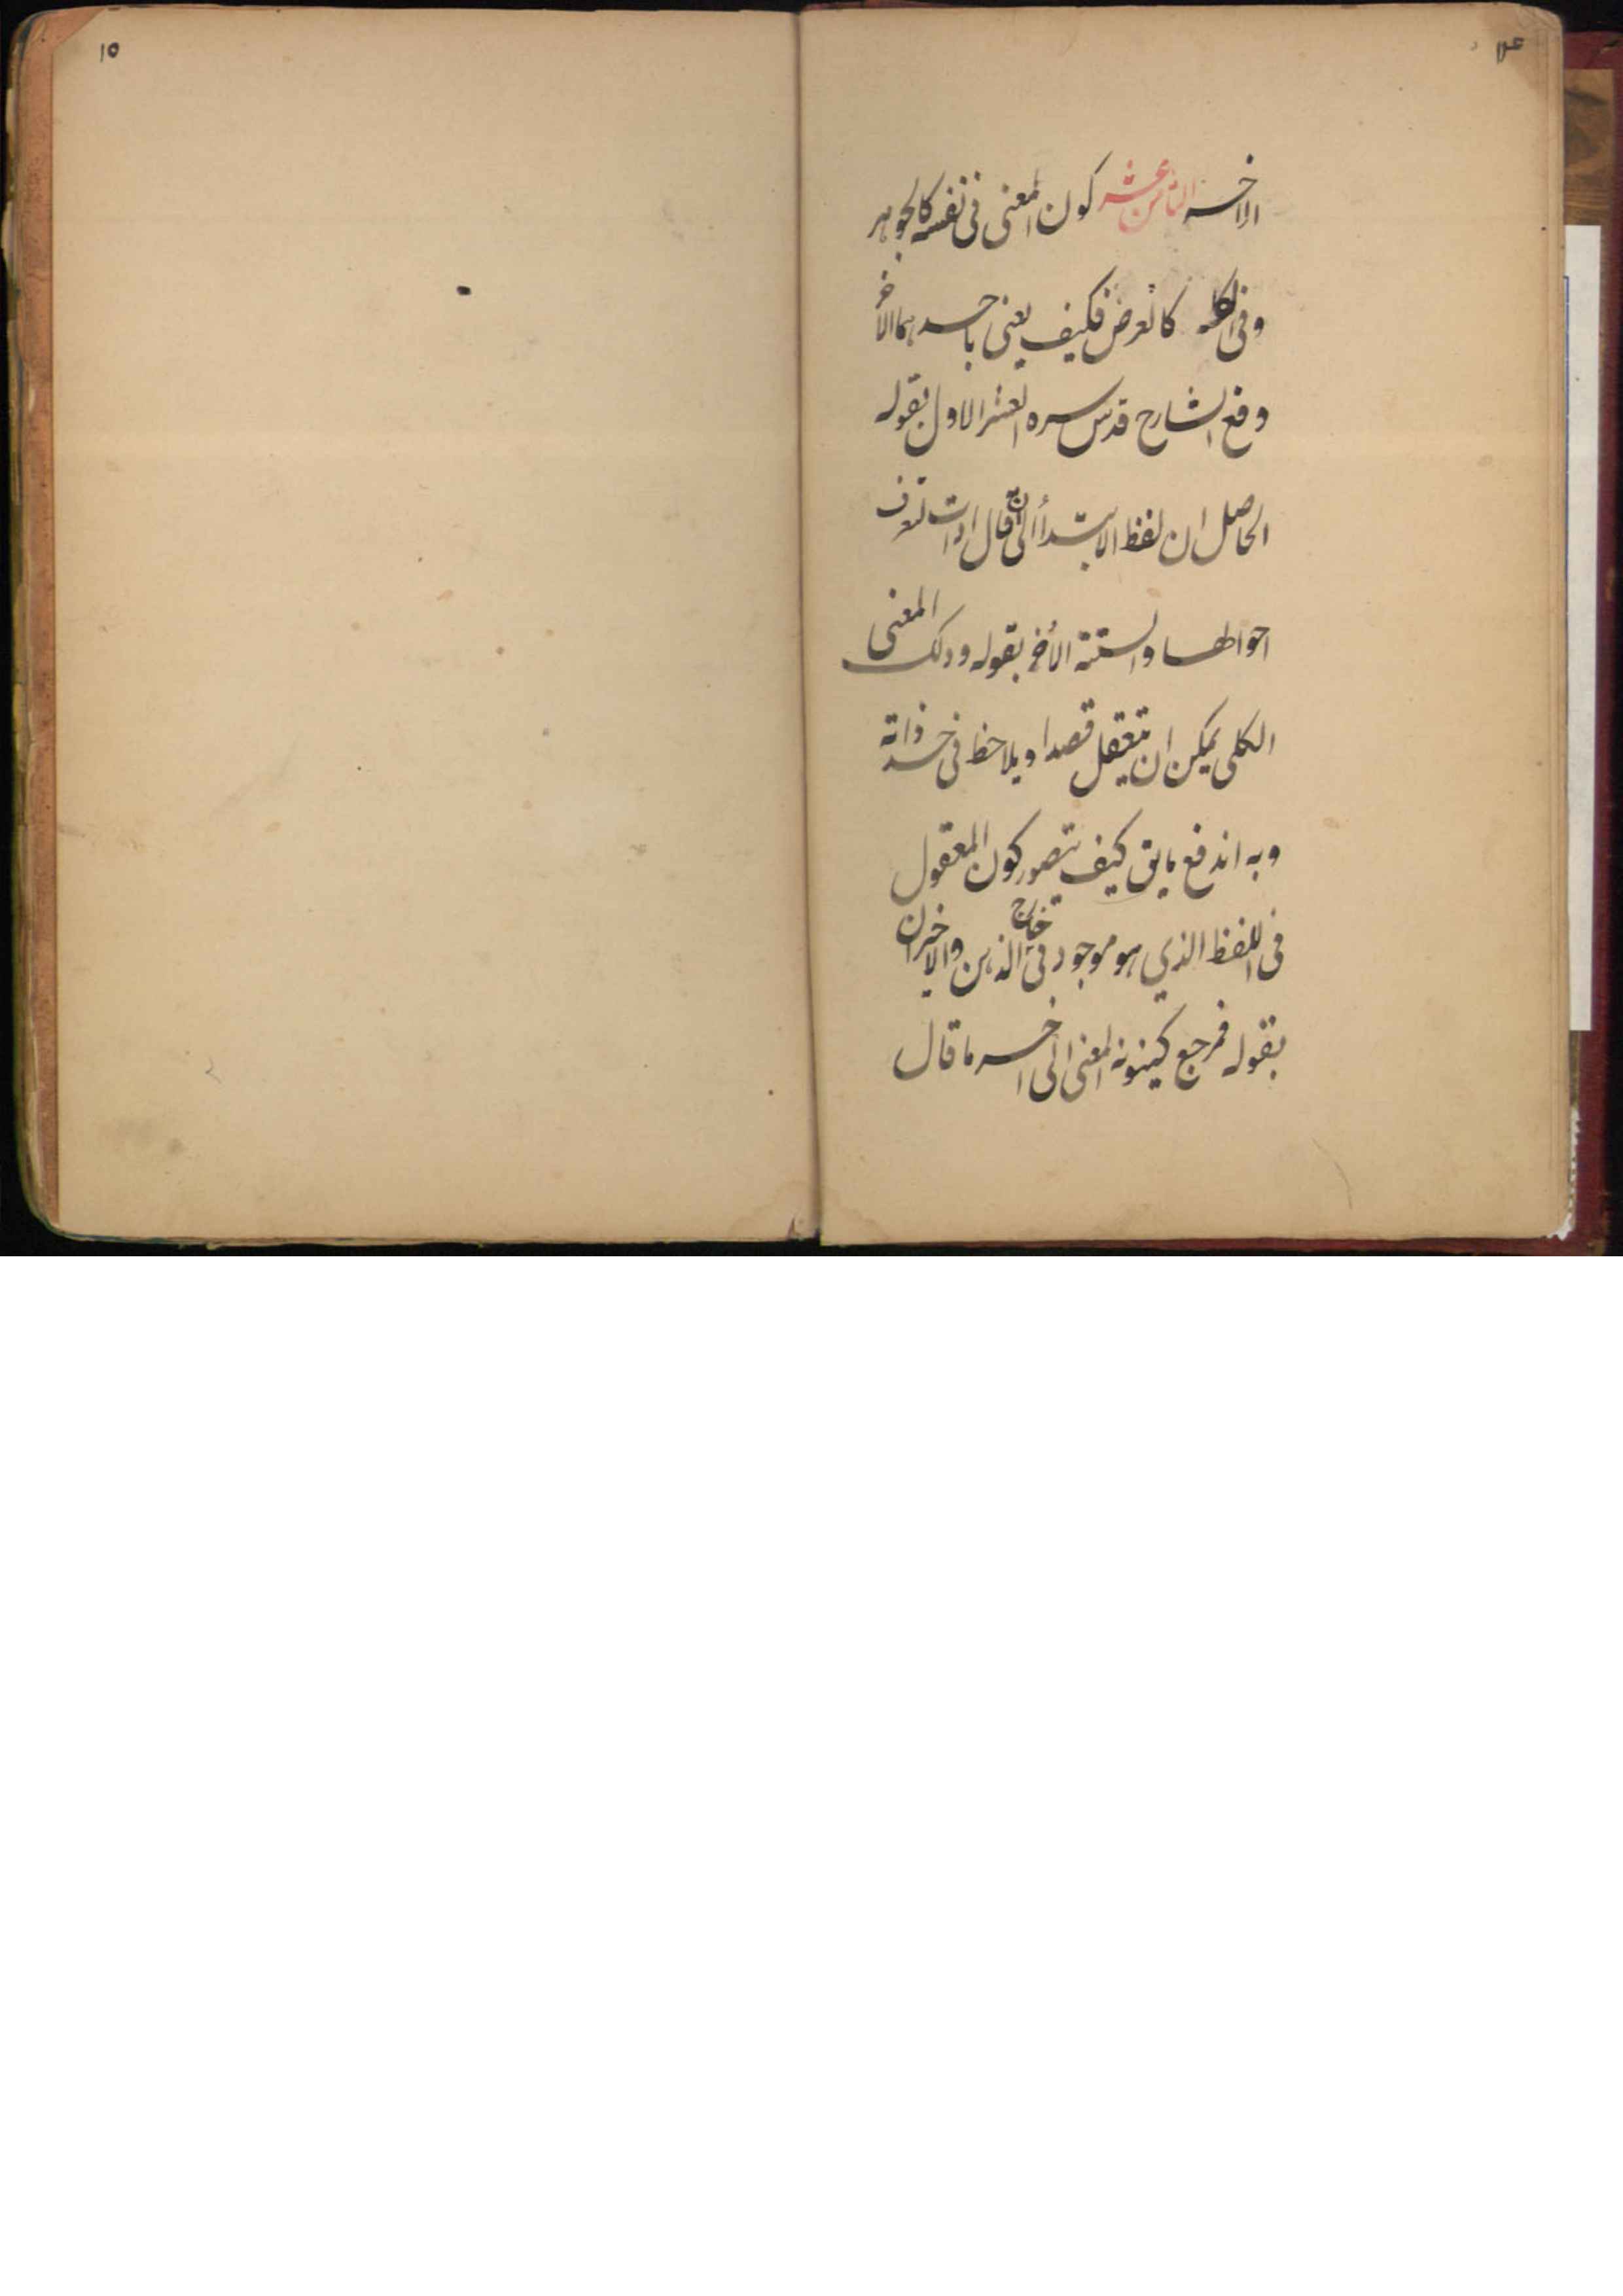 الاخر الثامن عشر كون المعنى فى نفسه كالجوهر
وفى الكلمة كالعرض فكيف يعنى باحدهما الاخر
دفع الشارح قدس سره العشر الاول بقوله
الحاصل ان لفظ الابتدأ الى ان قال ادات لتعرف
احوالها والستة الأخر بقوله وذلك المعنى
الكلى يمكن ان يتعقل قصدا ويلاحظ فى حد ذاته
وبه اندفع ما يق كيف يتصور كون المعقول
فى اللفظ الذي هو موجود فى خارج الذهن والاخيران
بقوله فمرجع كينونة المعنى الى اخره ما قال
١٥